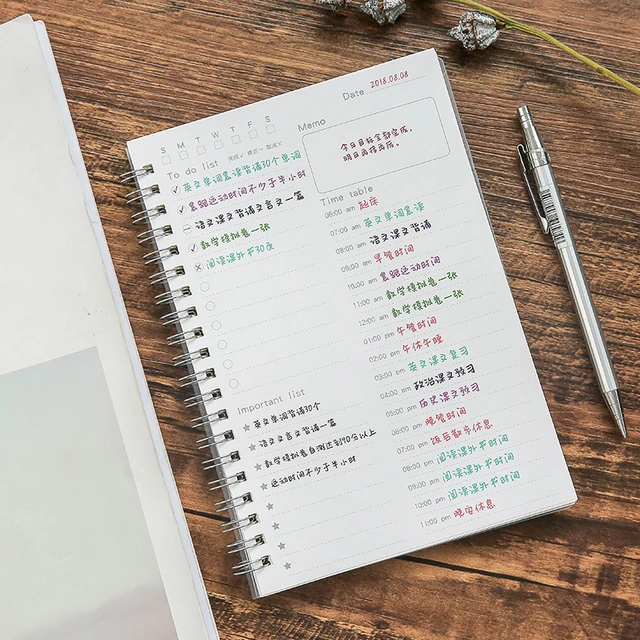 2018.08.08
Date
S M T W T F S
Memo
今日目标全部完成，
明日再接再厉。
To do list 完成√ 推迟→ 取消×
英文单词晨读背诵30个单词
晨跑运动时间不少于半小时
语文课文背诵文言文一篇
数学模拟卷一张
阅读课外书30页
Important list
英文单词背诵30个
语文文言文背诵一篇
数学模拟卷自测达到90分以上
运动时间不少于半小时
Time table
06:00 am 起床
07:00 am 英文单词晨读
08:00 am 语文课文背诵
09:00 am 早餐时间
10:00 am 晨跑运动时间
11:00 am 数学模拟卷一张
12:00 am 数学模拟卷一张
01:00 pm 午餐时间
02:00 pm 午休午睡
03:00 pm 英文课文复习
04:00 pm 政治课文预习
05:00 pm 历史课文预习
06:00 pm 晚餐时间
07:00 pm 饭后散步休息
08:00 pm 阅读课外书时间
09:00 pm 阅读课外书时间
10:00 pm 阅读课外书时间
11:00 pm 晚安休息